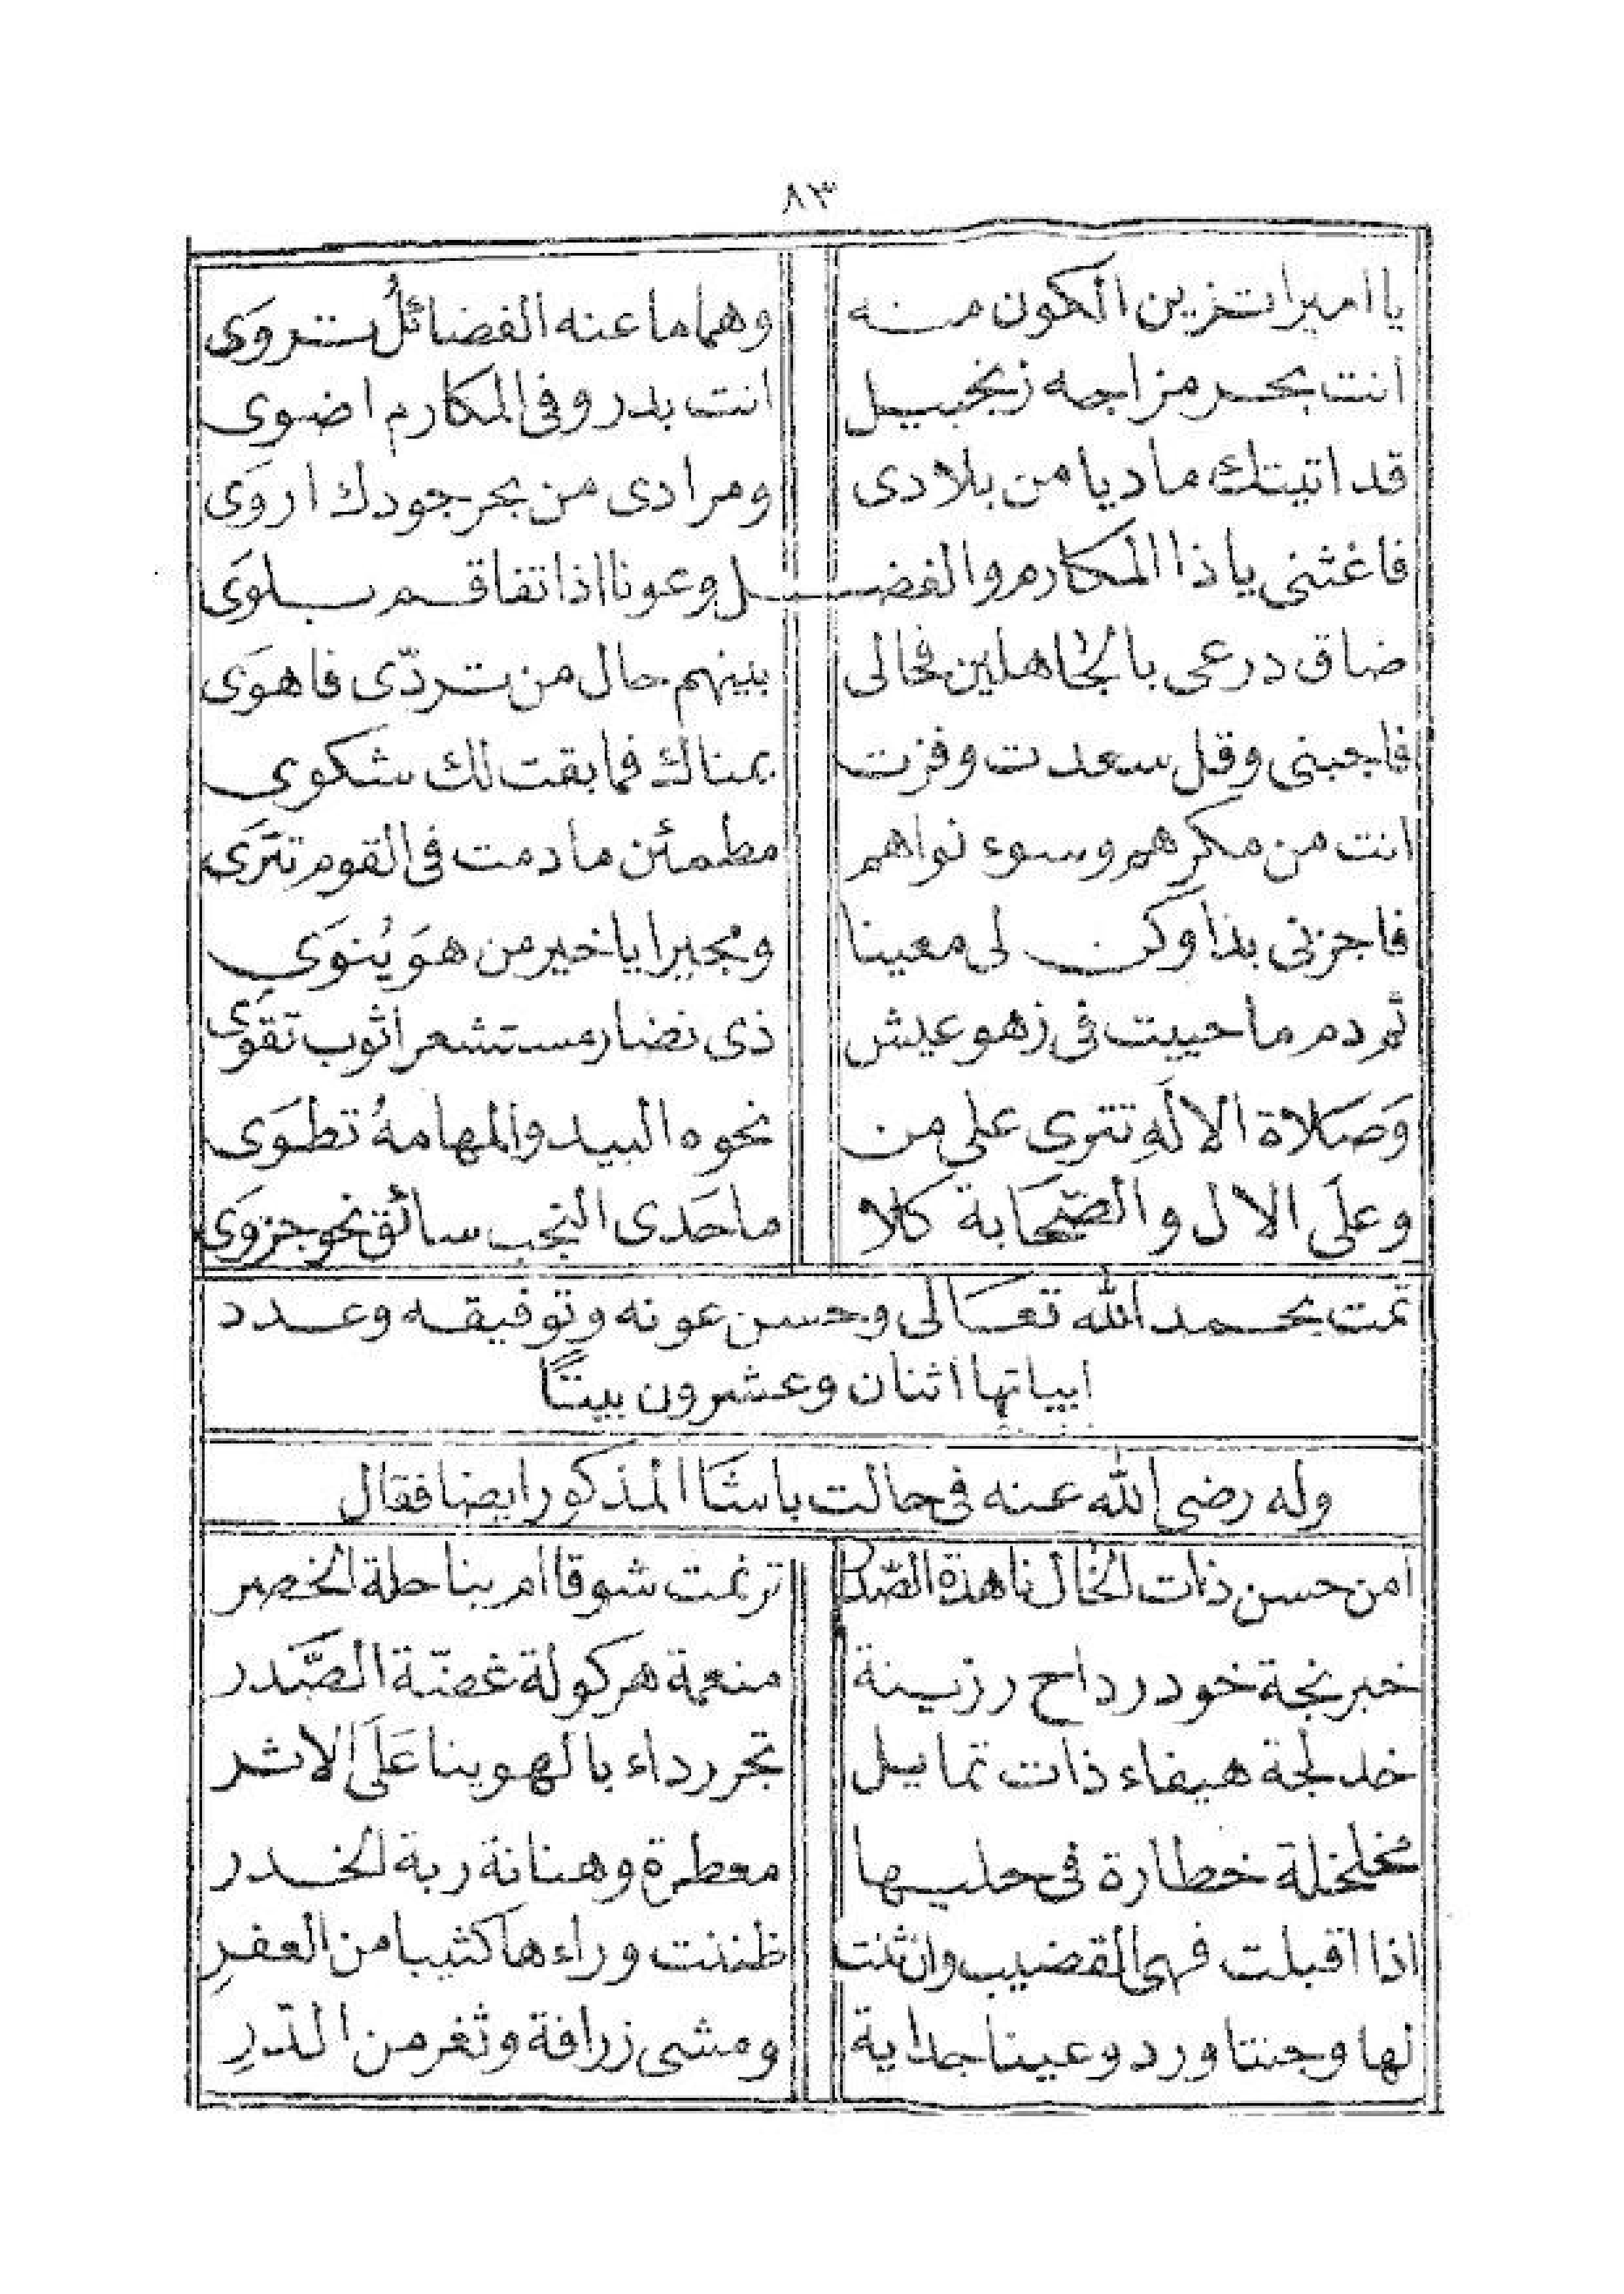 ٨٣
يا اميرا تزين الكون منه وهماما عنه الفضائلُ تروَى
انت بحر مزاجه زنجبيل انت بدر وفى المكارم اضوى
قد اتيتك ماديا من بلادى ومرادى من بحر جودك اروَى
فاغثنى يا ذا المكارم والفضل وعونا اذا تفاقم بلوَى
ضاق درعى بالجاهلين فحالى بينهم حال من تردّى فاهوَى
فاجبنى وقل سعدت وفزت بمناك فما بقت لك شكوى
انت من مكرهم وسوء نواهم مطمئن ما دمت فى القوم تترَى
فاجزنى بذا وكن لى معينا ومجيرا يا خير من هوَ يُنوَى
ثم دم ما حييت فى زهو عيش ذى نضار مستشعر اثوب تقوَى
وَصَلاة الالَهِ تترى على من نحوه البيد والمهامهُ تطوَى
وعلَى الال والصّحَابة كلا ما حَدى النجب سائق نحو جزوَى
تمت بحمد الله تعَالى وحسن عونه وتوفيقه وعدد
ابياتها اثنان وعشرون بيتًا
وله رضى الله عنه فى حالت باشَا المذكور ايضا فقال
امن حسن ذات الخال ناهدة الصّدر ترنمت شوقا ام بناحلة الخصر
خبرنجة خود رداح رزينة منعمة هركولة غضّة الصَّدر
خدلجة هيفاء ذات تمايل تجر رداء بالهوينا عَلَى الاثر
مخلخلة خطارة فى حليها معطرة وهنانة ربة الخدر
اذا اقبلت فهى القضيب وان ثنت ظننت وراءها كثيبا من العفرِ
لها وجنتا ورد وعينا جداية ومشى زرافة وثغر من الدّرِ